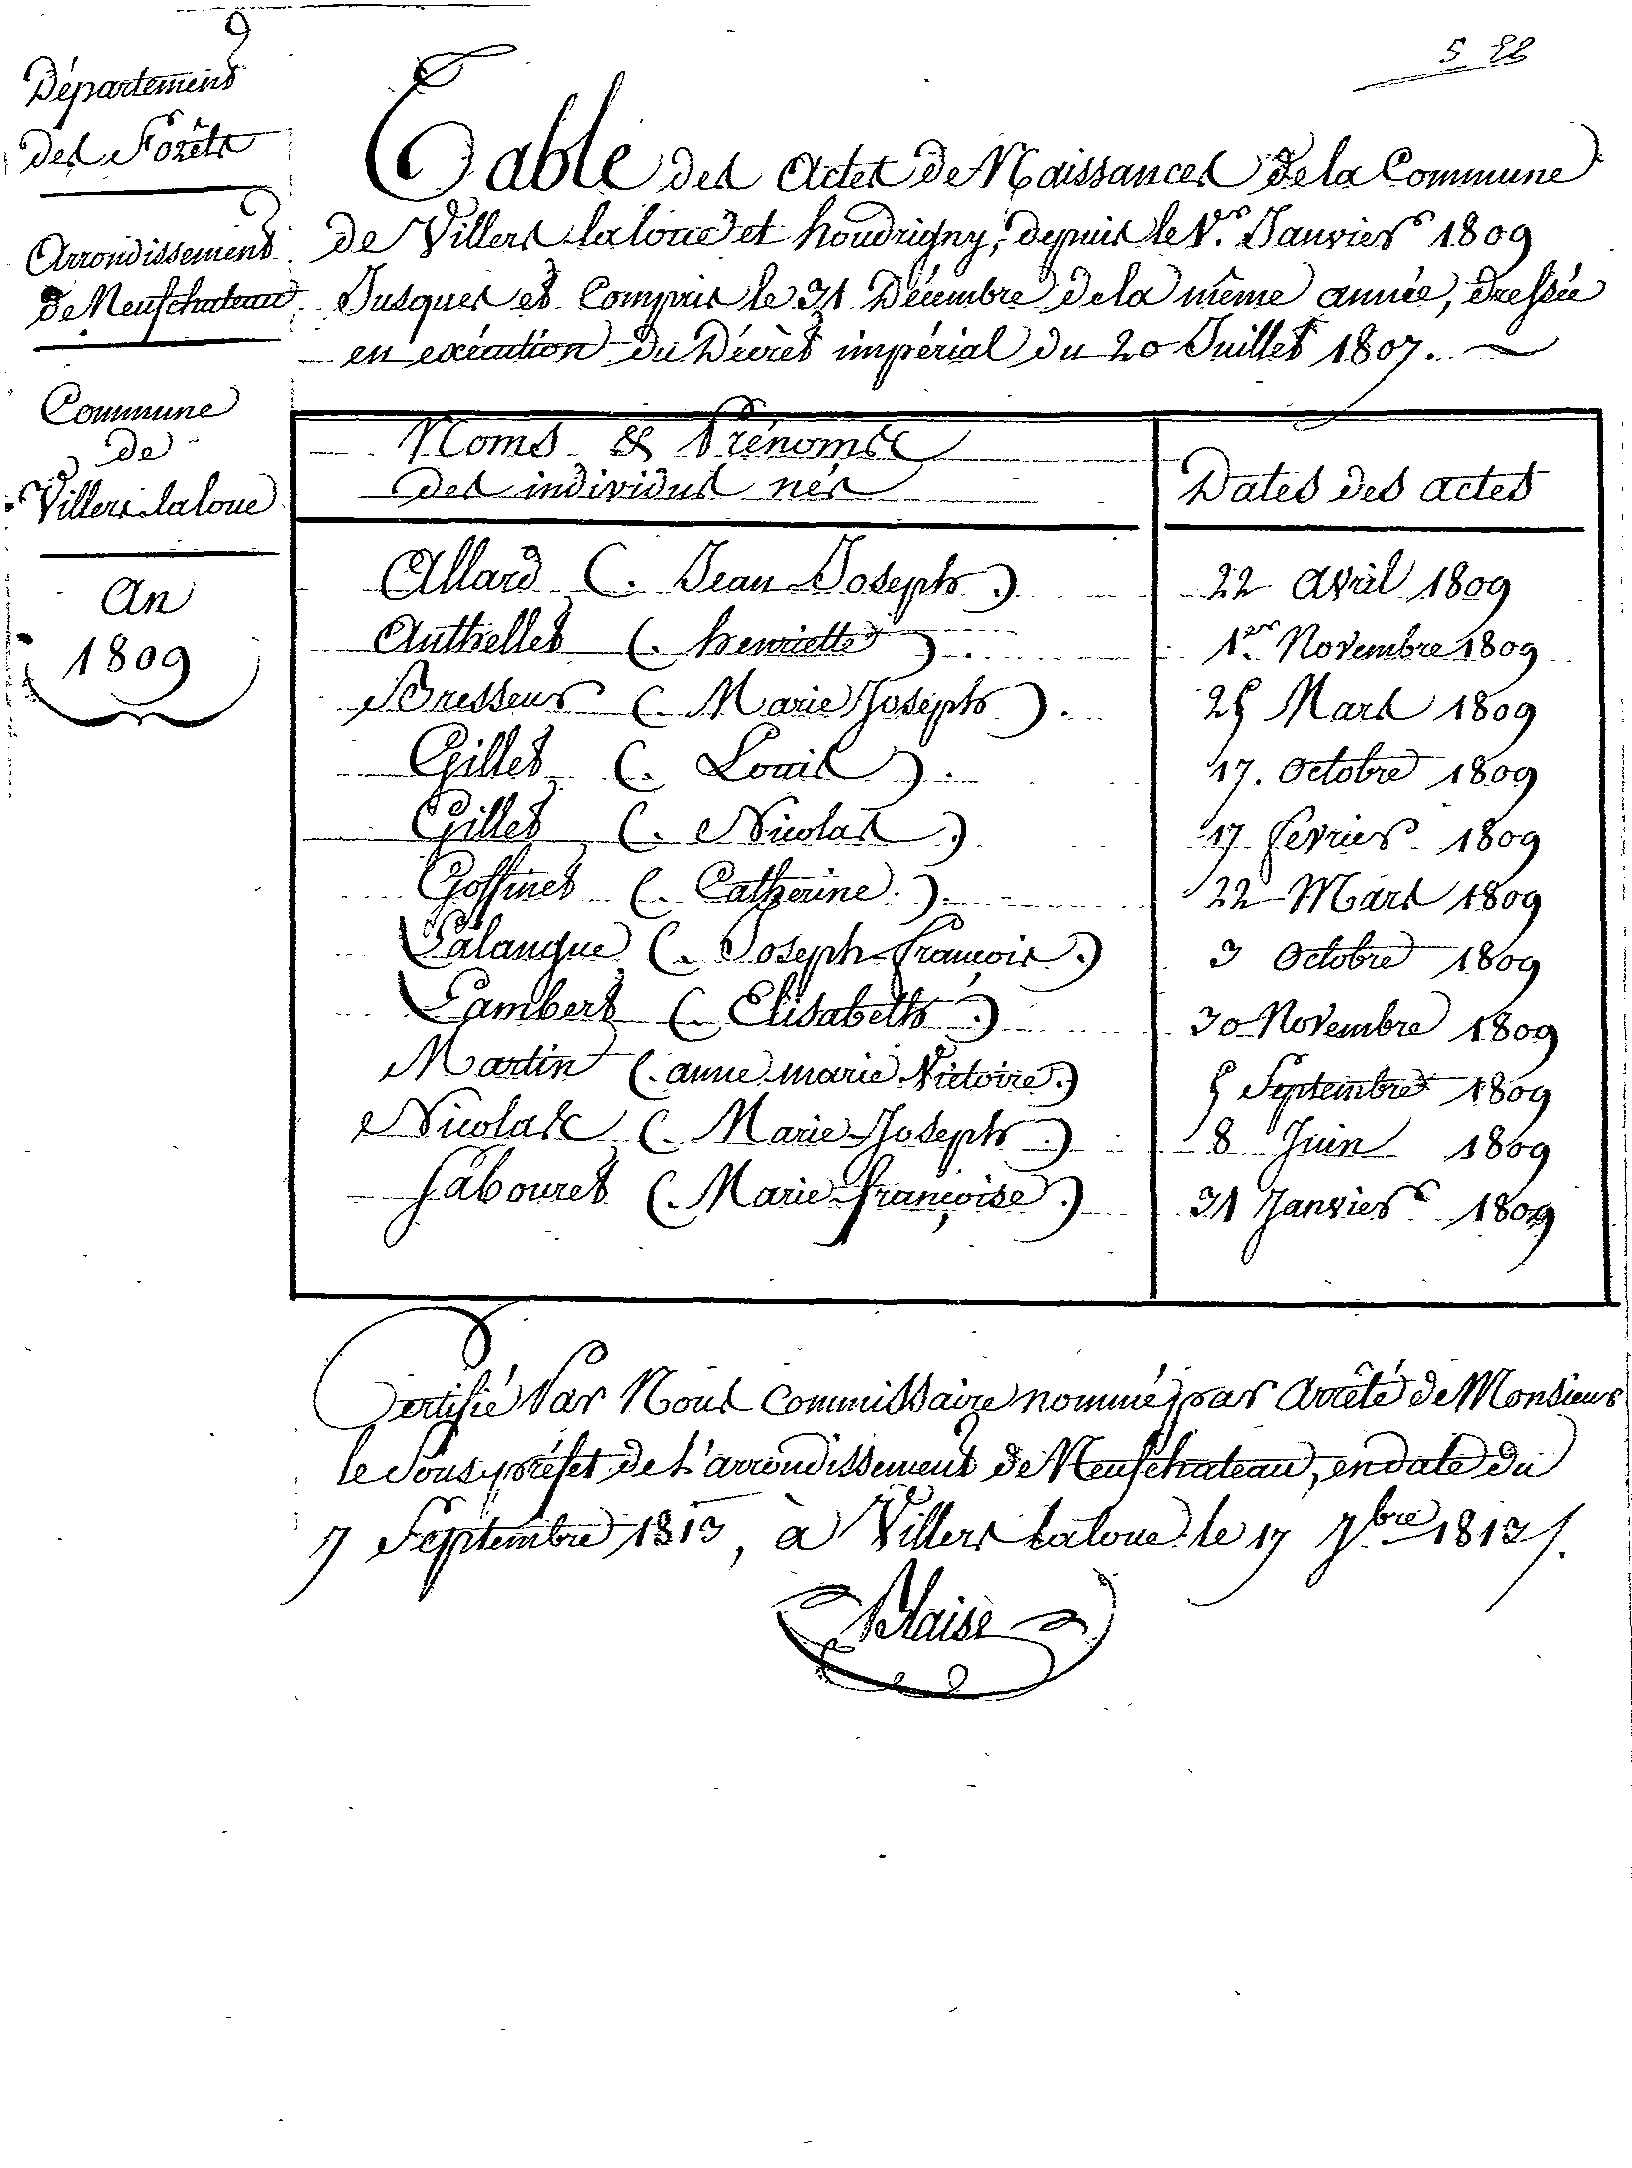 Département
des Forêts
Arrondissement
de Neufchateau
Commune
de
Villers laloue
An
1809
Table des Actes de Naissances de la Commune
de Villers laloue et houdrigny, depuis le 1.er Janvier 1809
Jusques et Compris le 31 Décembre de la même année, dressée
en exécution du Décret impérial du 20 Juillet 1807.
Noms & Prénoms
des individus nés
Dates des actes
Allard (. Jean Joseph.) 22 Avril 1809
Anthelet (. henriette). 1er Novembre 1809
Bresseur (. Marie Joseph). 25 Mars 1809
Gillet (. Louis). 17. Octobre 1809
Gillet (. Nicolas.) 17 fevrier 1809
Goffinet (. Catherine.). 22 Mars 1809
Lalangue (. Joseph françois.) 3 Octobre 1809
Lambert (. Elisabeth.) 30 Novembre 1809
Martin (. anne marie Victoire.) 5 Septembre 1809
Nicolas (. Marie Joseph.) 8 Juin 1809
Sabouret (. Marie françoise.) 31 Janvier 1809
Certifié Par Nous Commissaire nommé par Arrêté de Monsieur
le Sous préfet de L'arrondissement de Neufchateau, en date du
7 Septembre 1813, à Villers Laloue le 17 7.bre 1813.
Blaise